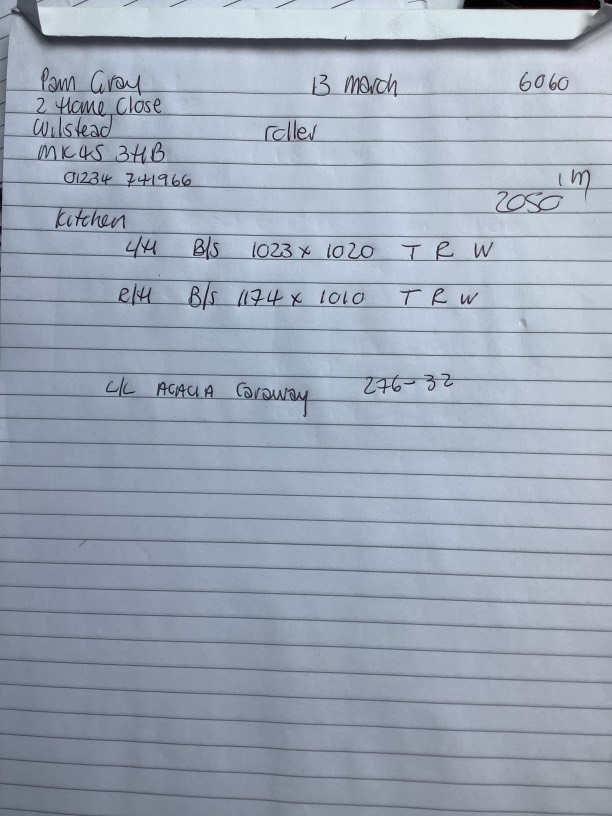 Pam Gray 13 March 6060
2 Home Close
Wilstead roller
MK45 3HB
01234 741966 1M
2050
Kitchen
L/H B/S 1023 x 1020 T R W
R/H B/S 1174 x 1010 T R W
C/C ACACIA Caraway 276-32